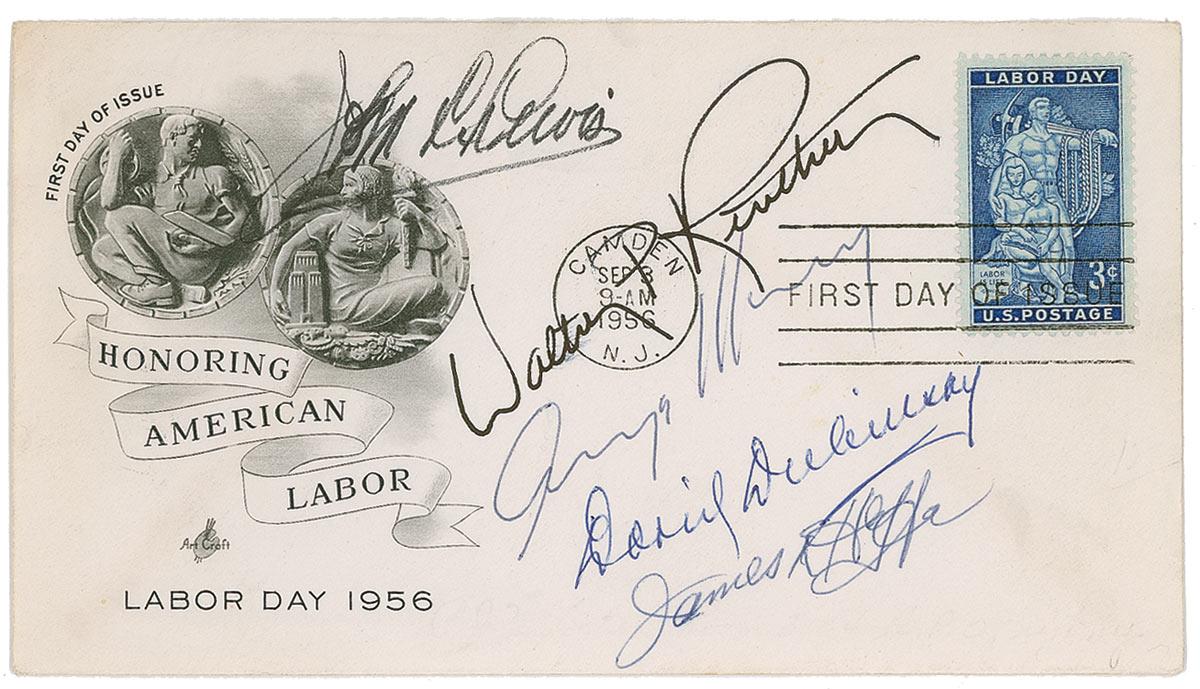 FIRST DAY OF ISSUE
HONORING
AMERICAN
LABOR
Art Craft
LABOR DAY 1956
John L Lewis
Walter P Reuther
George Meany
David Dubinsky
James R Hoffa
CAMDEN
SEP 3
9-AM
1956
N. J.
FIRST DAY OF ISSUE
LABOR DAY
LABOR
3¢
U.S. POSTAGE